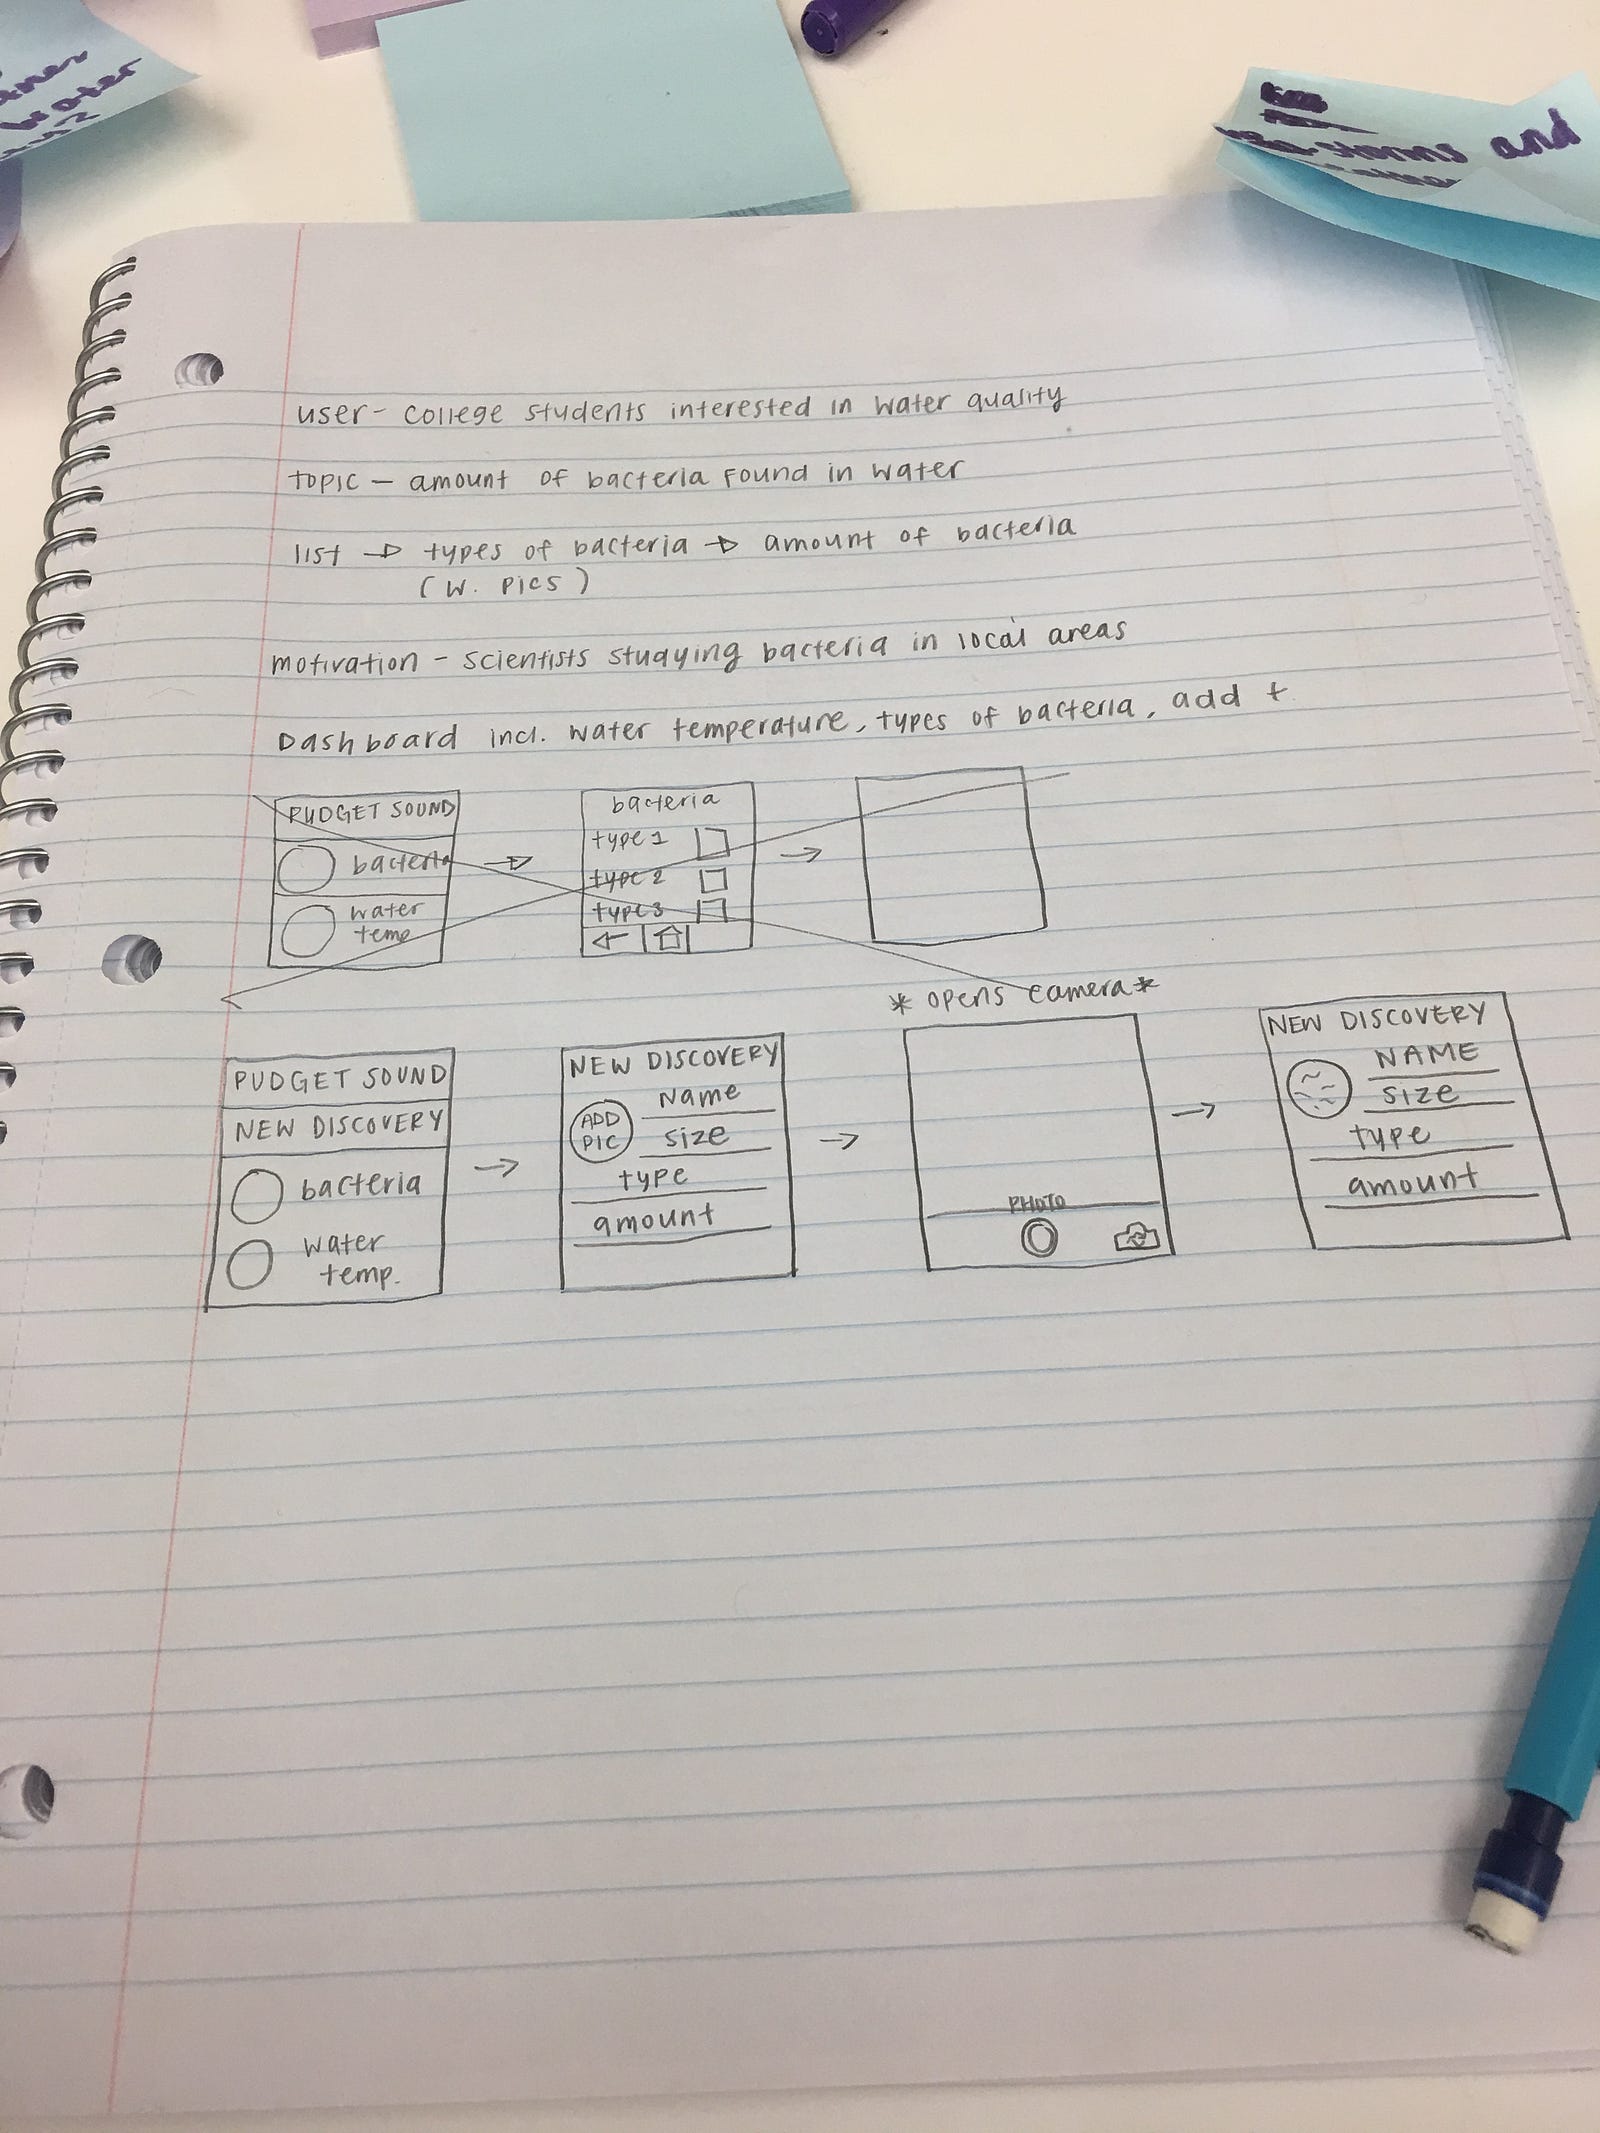 water
storms and
user - college students interested in water quality
topic - amount of bacteria found in water
list → types of bacteria → amount of bacteria
(w. pics)
motivation - scientists studying bacteria in local areas
Dashboard incl. water temperature, types of bacteria, add +
PUDGET SOUND
bacteria
water
temp
bacteria
type 1
type 2
type 3
* opens camera *
PUDGET SOUND
NEW DISCOVERY
bacteria
water
temp.
NEW DISCOVERY
ADD
PIC
Name
size
type
amount
PHOTO
NEW DISCOVERY
NAME
size
type
amount